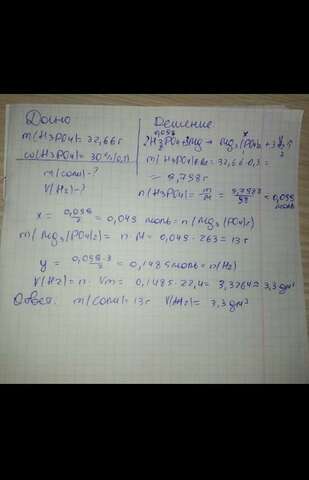 Дано
m(H3PO4)=32,66г
ω(H3PO4)=30%(0,3)
m(соли)-?
V(H2)-?
Решение
0,099 x
2H3PO4+3Mg → Mg3(PO4)2+3H2↑
m(H3PO4)в-ва=32,66·0,3=
=9,798г
n(H3PO4)=m/M=9,798/98=0,099
моль
x = 0,099/2 = 0,049 моль=n(Mg3(PO4)2)
m(Mg3(PO4)2)= n·M = 0,049·263=13г
y = 0,099·3/2 = 0,1485моль=n(H2)
V(H2)= n·Vm = 0,1485·22,4=3,3264≈3,3дм³
Ответ: m(соли)=13г V(H2)= 3,3дм³